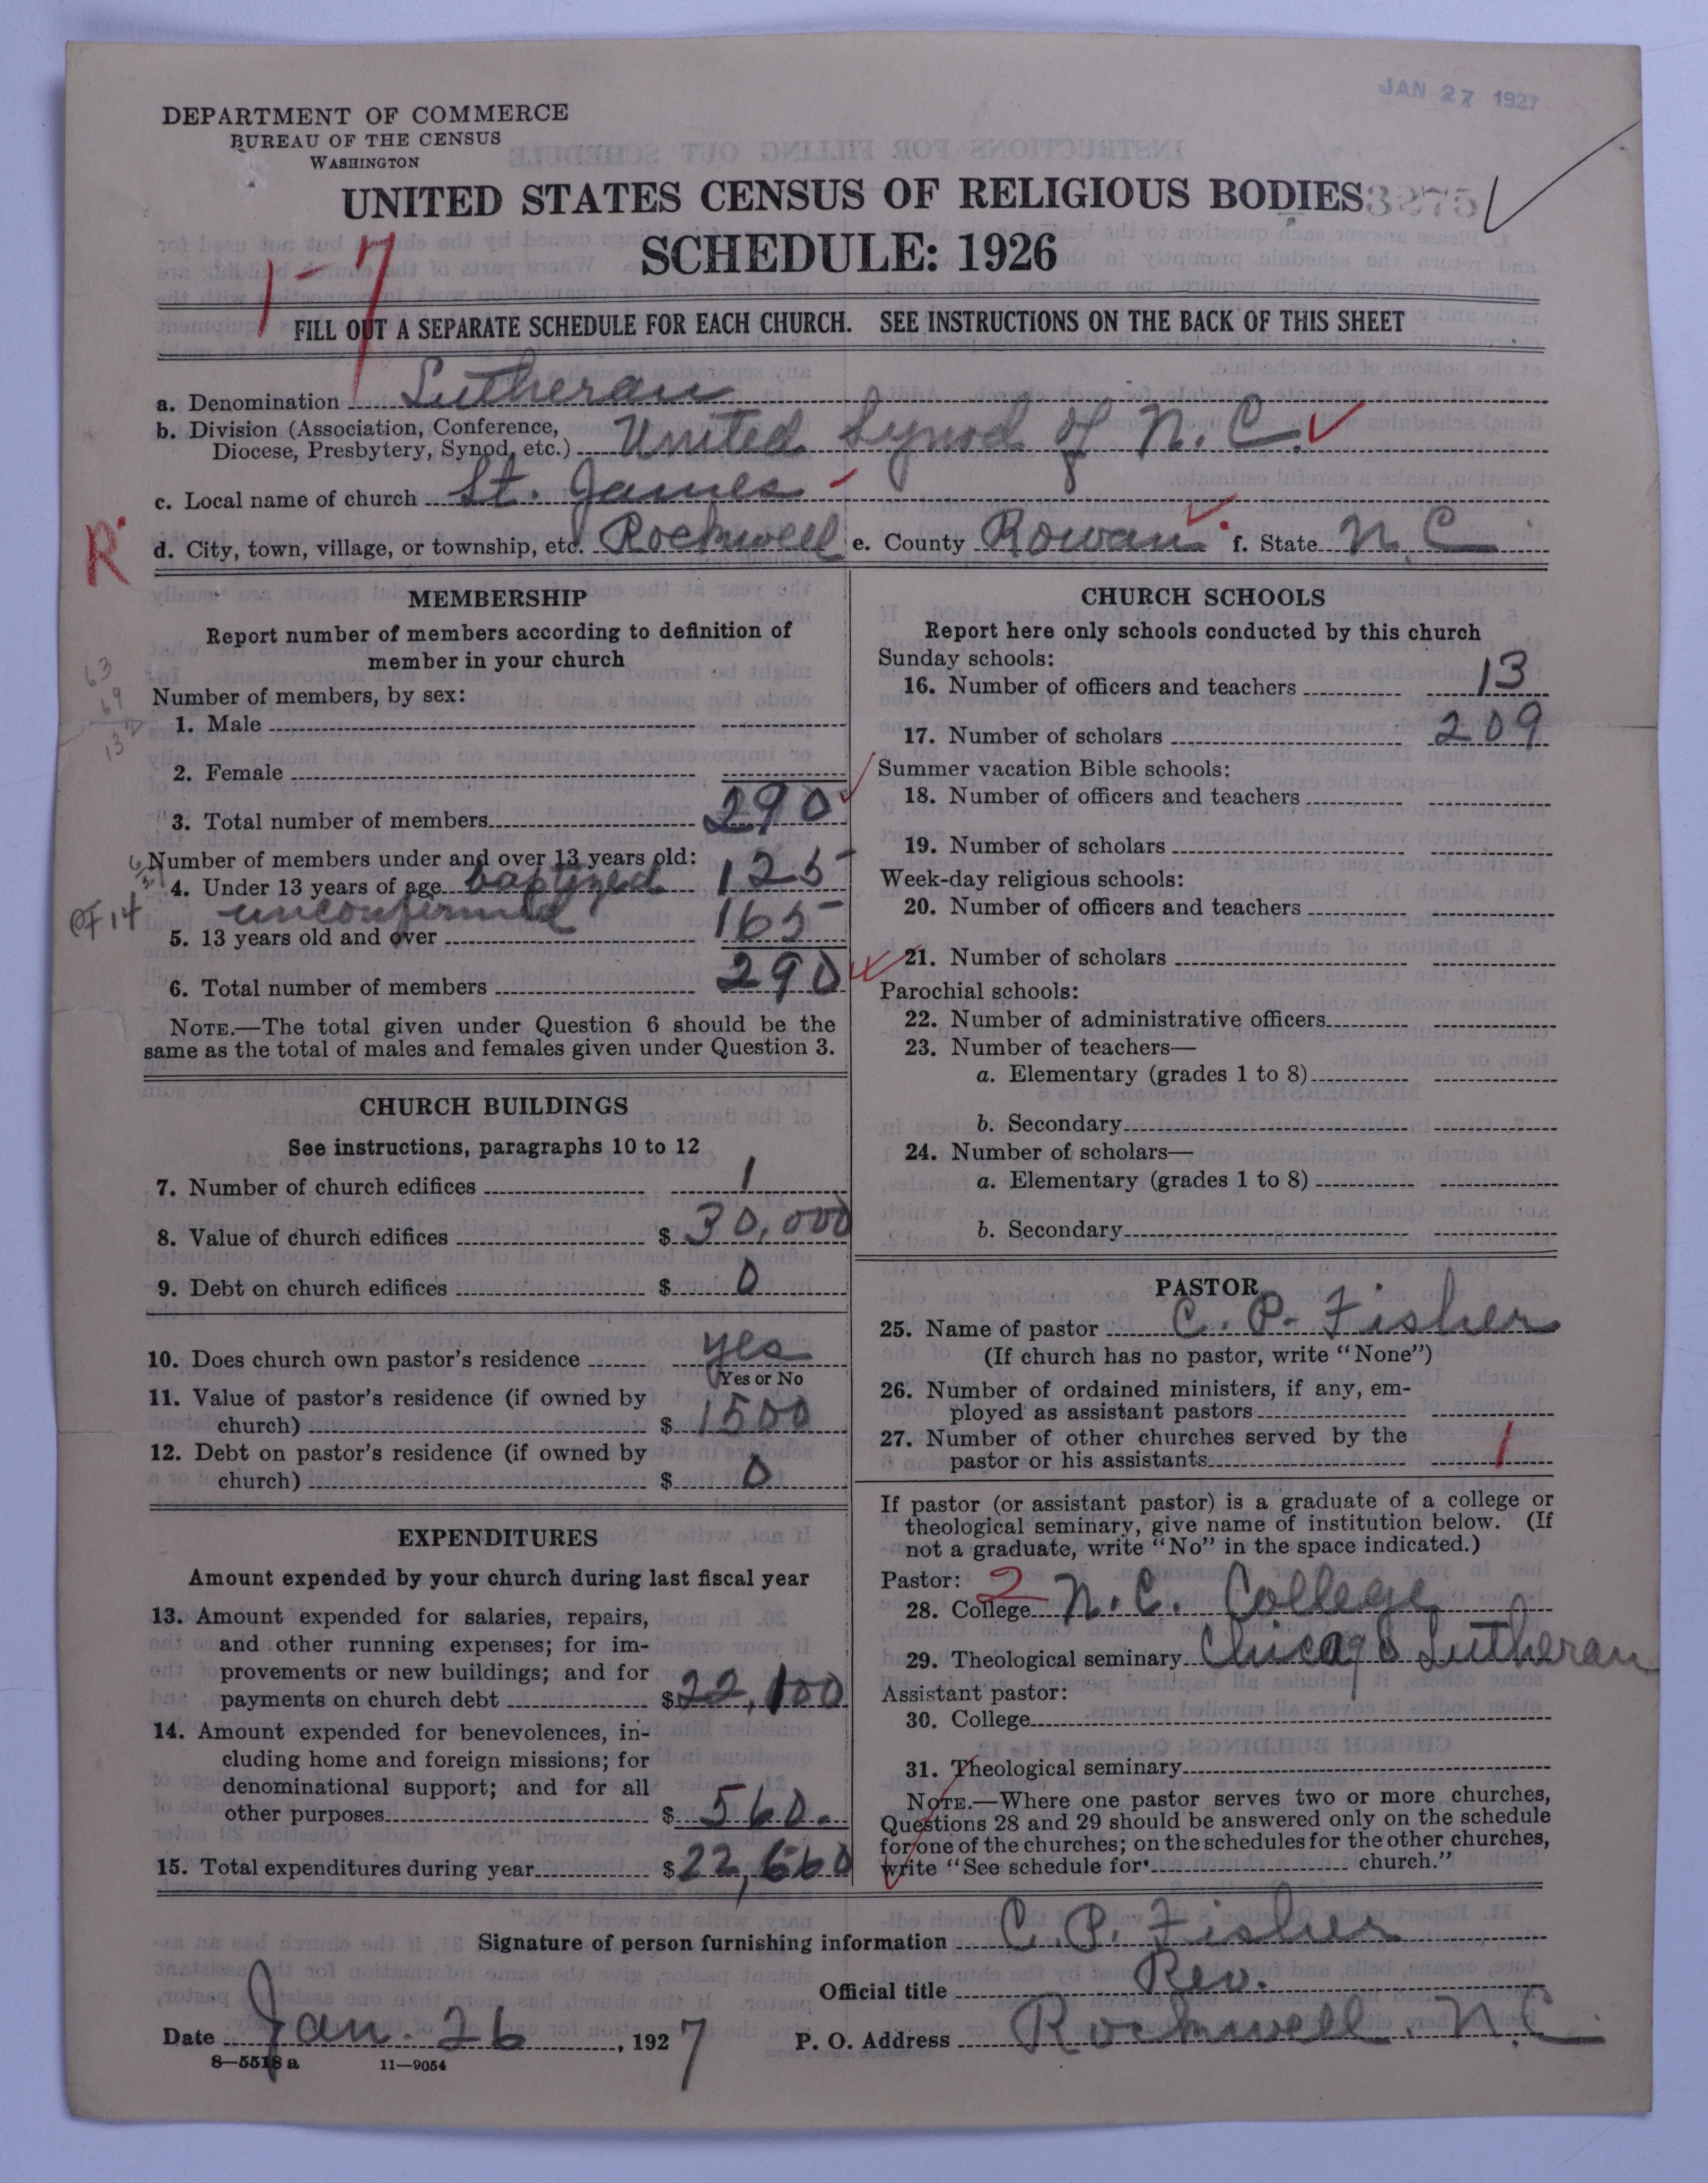 JAN 27 1927
DEPARTMENT OF COMMERCE
BUREAU OF THE CENSUS
WASHINGTON
UNITED STATES CENSUS OF RELIGIOUS BODIES 3275
SCHEDULE: 1926
1-7
FILL OUT A SEPARATE SCHEDULE FOR EACH CHURCH. SEE INSTRUCTIONS ON THE BACK OF THIS SHEET
a. Denomination Lutheran
b. Division (Association, Conference,
Diocese, Presbytery, Synod, etc.) United Synod of N.C.
c. Local name of church St. James
R
d. City, town, village, or township, etc. Rockwell e. County Rowan f. State N.C
MEMBERSHIP
Report number of members according to definition of
member in your church
63
69
132
Number of members, by sex:
1. Male
2. Female
3. Total number of members 290
Number of members under and over 13 years old:
4. Under 13 years of age baptized 125
unconfirmed
5. 13 years old and over 165
6. Total number of members 290
NOTE.—The total given under Question 6 should be the
same as the total of males and females given under Question 3.
CHURCH BUILDINGS
See instructions, paragraphs 10 to 12
7. Number of church edifices 1
8. Value of church edifices $ 30,000
9. Debt on church edifices $ 0
10. Does church own pastor's residence yes
Yes or No
11. Value of pastor's residence (if owned by
church) $ 1500
12. Debt on pastor's residence (if owned by
church) $ 0
EXPENDITURES
Amount expended by your church during last fiscal year
13. Amount expended for salaries, repairs,
and other running expenses; for im-
provements or new buildings; and for
payments on church debt $ 22,100
14. Amount expended for benevolences, in-
cluding home and foreign missions; for
denominational support; and for all
other purposes $ 560.
15. Total expenditures during year $ 22,660
CHURCH SCHOOLS
Report here only schools conducted by this church
Sunday schools:
16. Number of officers and teachers 13
17. Number of scholars 209
Summer vacation Bible schools:
18. Number of officers and teachers
19. Number of scholars
Week-day religious schools:
20. Number of officers and teachers
21. Number of scholars
Parochial schools:
22. Number of administrative officers
23. Number of teachers—
a. Elementary (grades 1 to 8)
b. Secondary
24. Number of scholars—
a. Elementary (grades 1 to 8)
b. Secondary
PASTOR
25. Name of pastor C. P. Fisher
(If church has no pastor, write "None")
26. Number of ordained ministers, if any, em-
ployed as assistant pastors
27. Number of other churches served by the
pastor or his assistants 1
If pastor (or assistant pastor) is a graduate of a college or
theological seminary, give name of institution below. (If
not a graduate, write "No" in the space indicated.)
Pastor: 2
28. College N.C. College
29. Theological seminary Chicago Lutheran
Assistant pastor:
30. College
31. Theological seminary
NOTE.—Where one pastor serves two or more churches,
Questions 28 and 29 should be answered only on the schedule
for one of the churches; on the schedules for the other churches,
write "See schedule for church."
Signature of person furnishing information C. P. Fisher
Official title Rev.
Date Jan. 26, 1927 P. O. Address Rockwell. N.C.
8—5518 a 11—9054